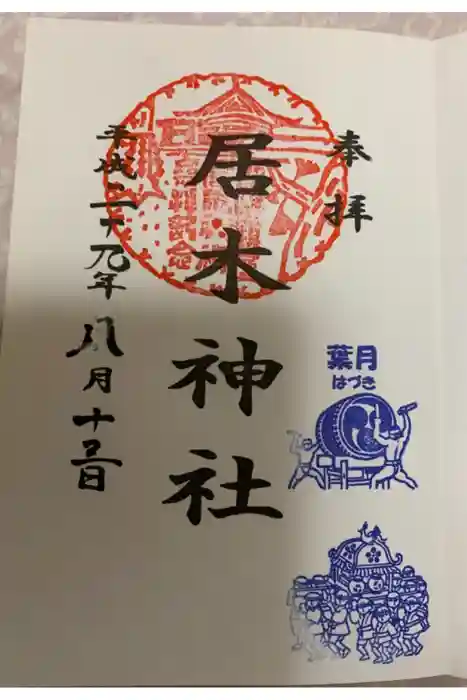 奉拝
葉月
はづき
居木神社
平成二十九年八月十五日